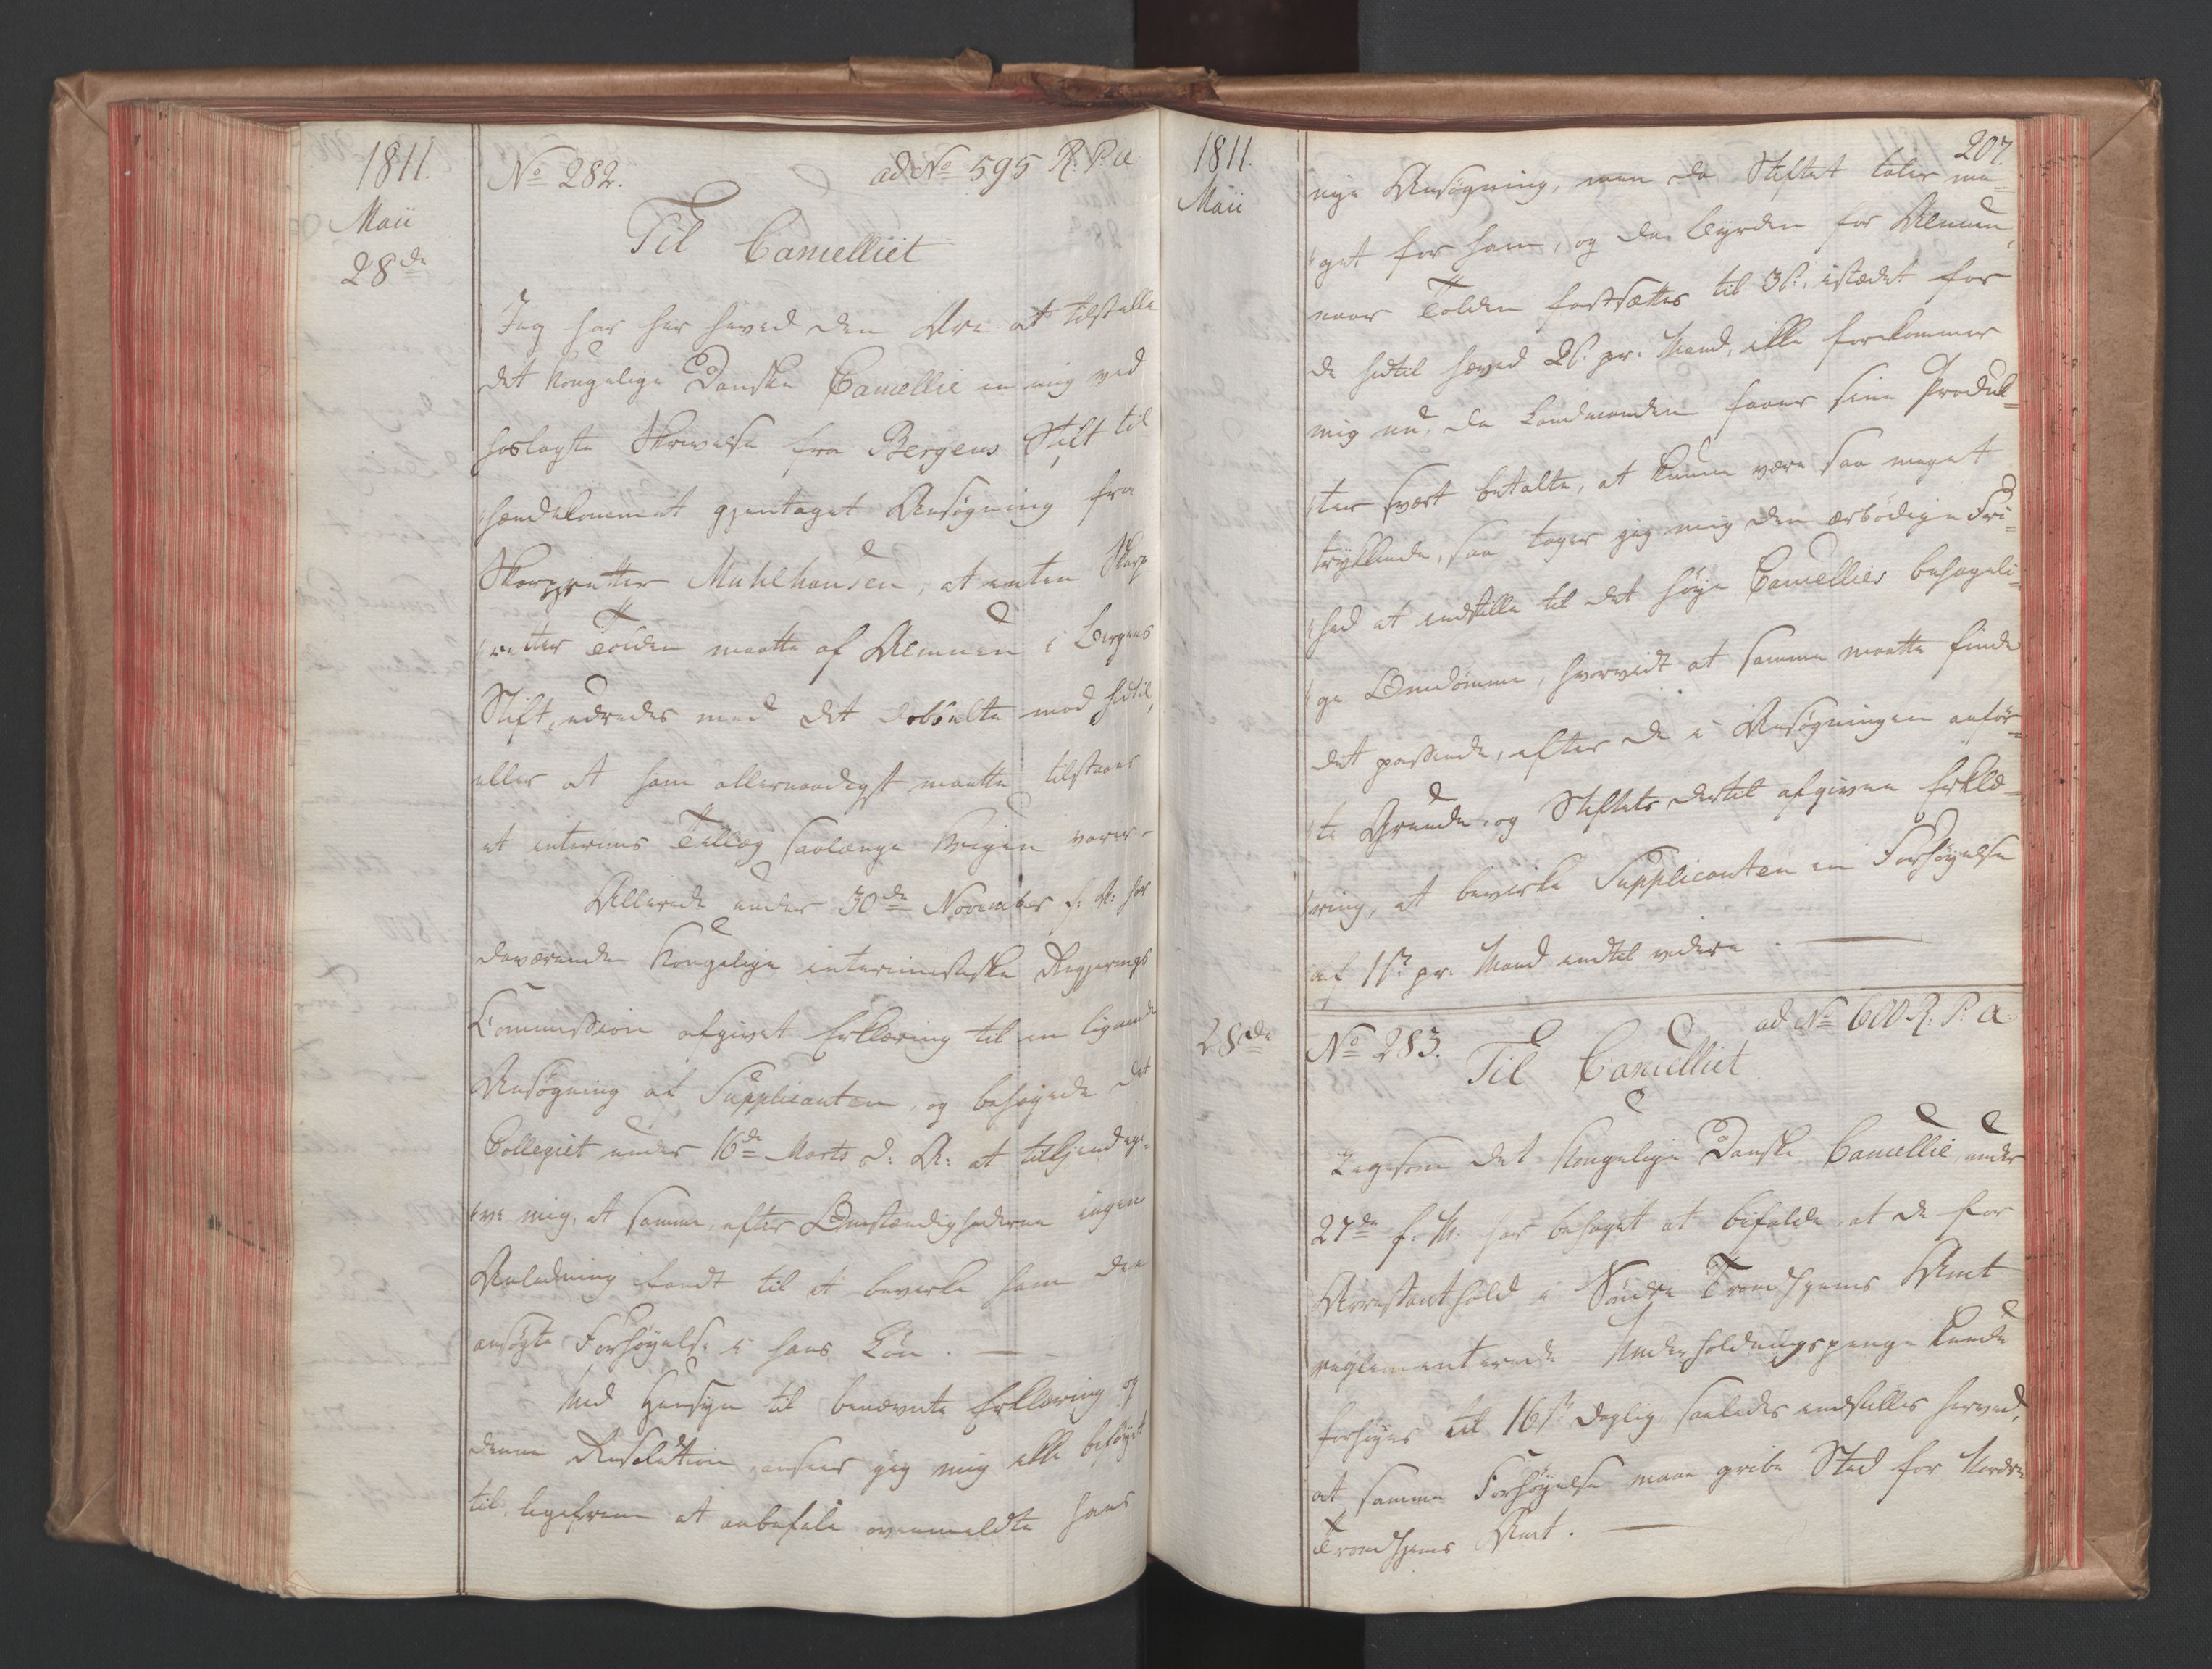 1811.
Maii
28de
No 282.
ad No 595 R. P. a
Til Cancelliet
Jeg har her herved den Ære at tilstille
det Kongelige Danske Cancellie en mig ved
hoslagte Skrivelse fra Bergens Stift til
hændekommet gjentaget Ansøgning fra
Skarpretter Muhlhausen, at enten Skarp
retter Tolden maatte af Almuen i Bergens
Stift, udredes med det dobbelte mod hidtil,
eller at ham allernaadigst maatte tilstaaes
et interims Tillæg saalænge Krigen varer.
Allerede under 30de November f. A. har
daværende Kongelige interimistiske Regjerings
Commission afgivet Erklæring til en lignende
Ansøgning af Supplicanten, og behagede det
Collegiet under 16de Marts d. A. at tilkjendegi-
ve mig, at samme, efter Omstændighederne ingen
Anledning fandt til at bevirke ham den
ansøgte Forhøyelse i hans Løn. —
Med Hensyn til benævnte Erklæring og
denne Resolution, anseer jeg mig ikke beføyet
til ligefrem at anbefale ovenmeldte hans
1811.
Maii
207.
nye Ansøgning, men da Stiftet taler me-
get for ham, og da Byrden for Almuen,
naar Tolden fastsættes til 3 s., istædet for
de hidtil hæved 2 s. pr. Mand, ikke forekommer
mig nu, da Landmanden faaer sine Produk-
ter svært betalte, at kunne være saa meget
trykkende, saa tager jeg mig den ærbødige Fri-
hed at indstille til det høye Cancellies behageli-
ge Omdømme, hvorvidt at samme maatte finde
det passende, efter de i Ansøgningen anfør-
te Grunde, og Stiftets dertil afgivne Erklæ-
ring, at bevirke Supplicanten en Forhøyelse
af 1 s. pr. Mand indtil videre. —
28de
No 283.
ad No 600 R. P. a.
Til Cancelliet
Ligesom det Kongelige Danske Cancellie, under
27de f. M. har behaget at bifalde, at de for
Arrestanthold i Søndre Trondhjems Amt
reglementerede Underholdningspenge kunde
forhøyes til 16 s. daglig, saaledes indstilles herved,
at samme Forhøyelse maae gribe Sted for Nordre
Trondhjems Amt. —